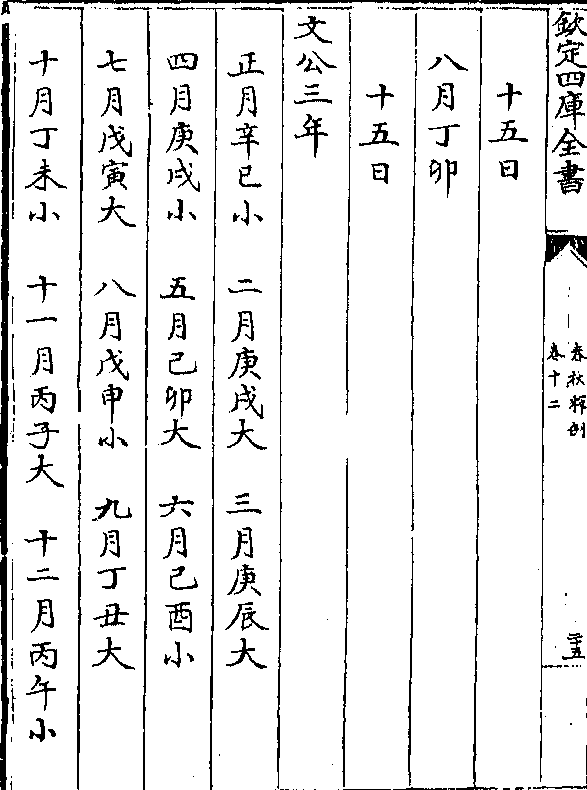 欽定四庫全書
春秋釋例
卷十二
三五
十五日
八月丁卯
十五日
文公三年
正月辛巳小 二月庚戌大 三月庚辰大
四月庚戌小 五月己卯大 六月己酉小
七月戊寅大 八月戊申小 九月丁丑大
十月丁未小 十一月丙子大 十二月丙午小